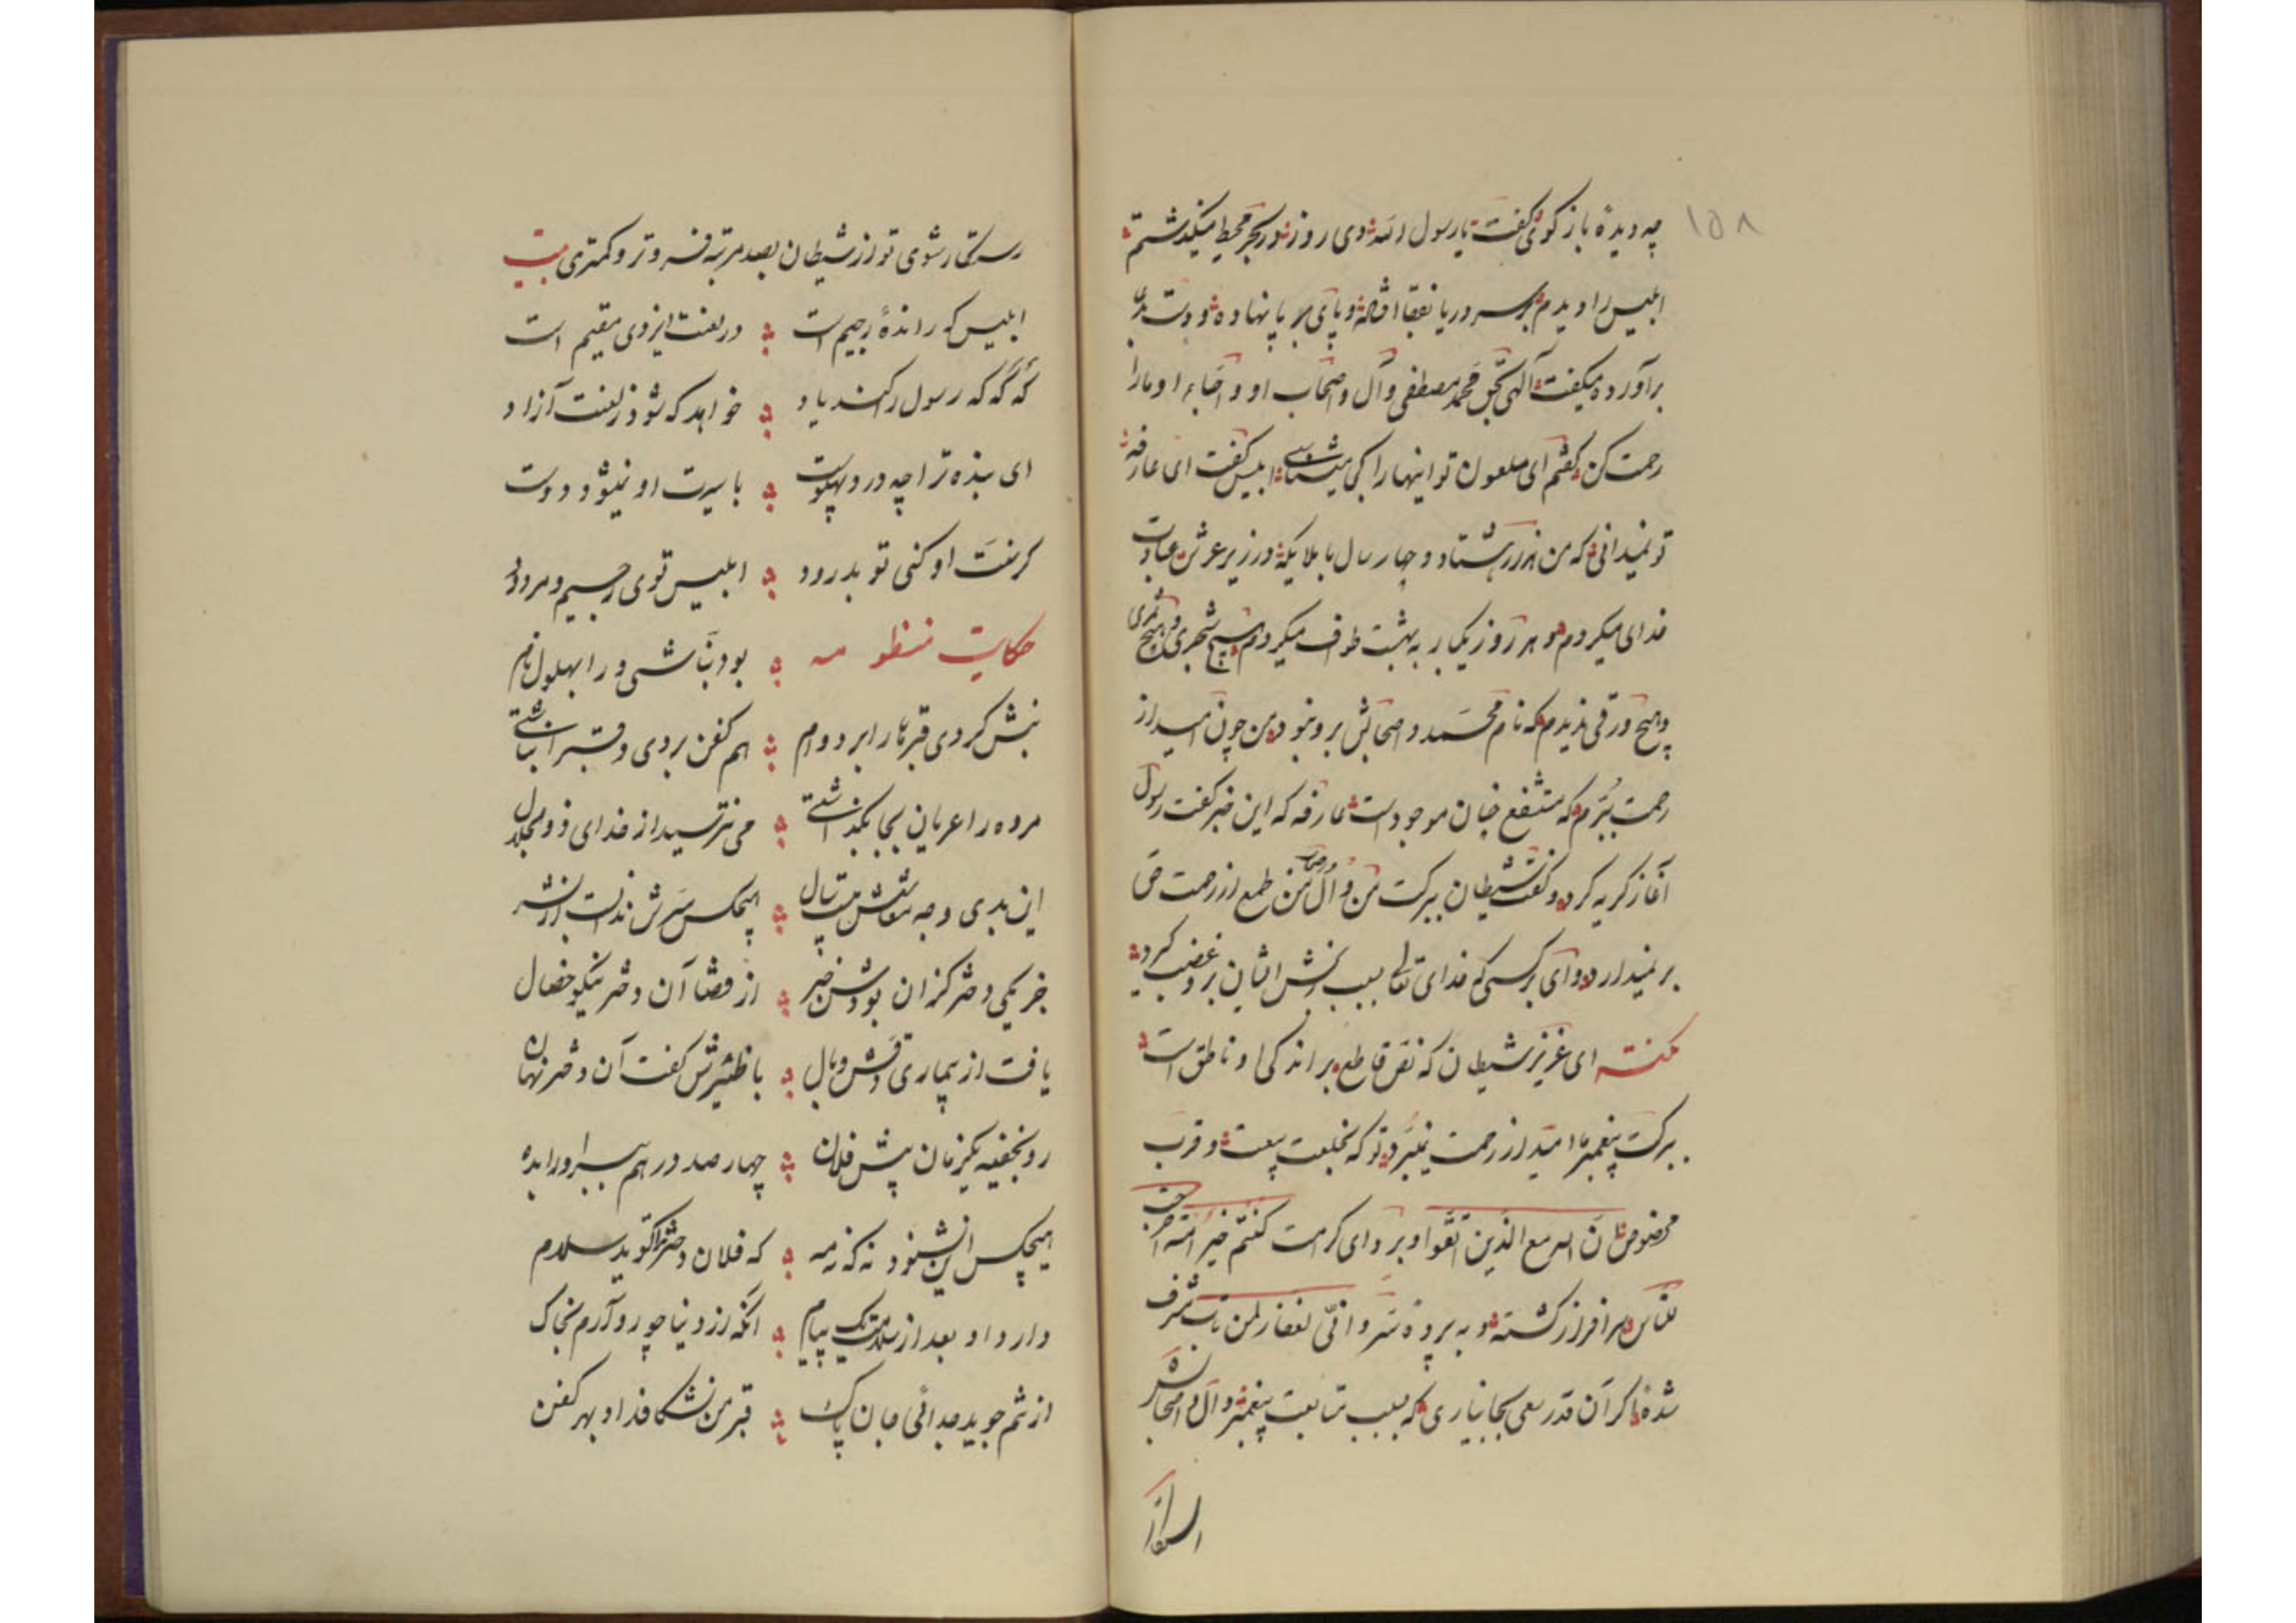 ۱۵۸
چه دیدهٔ باز گوئی گفت یا رسول الله دی روز در بحر محیط میگذشتم
ابلیس را دیدم بر سر دریا بقفا افتاده و پای بر پا نهاده و دست
برآورده میگفت الهی بحق محمد مصطفی و آل و اصحاب او و احباء او مارا
رحمت کن گفتم ای ملعون تو اینهارا کی میشناسی ابلیس گفت ای عارفه
تو نمیدانی که من هزار هشتاد و چهار سال با ملایکه در زیر عرش عبادت
خدای میکردم و هر روز یکبار به بهشت طواف میکردم هیچ شجری و هیچ ثمری
و هیچ ورقی ندیدم که نام محمد و اصحابش برو نبود من چون امید از
رحمت ببرم که متشفع چنان موجودست عارفه که این خبر گفت رسول
آغاز گریه کرد و گفت شیطان ببرکت من و آل من طمع از رحمت حق
بر نمیدارد وای بر کسی که خدای تعالی بسبب رنجش ایشان برو غضب کرد
نکته ای عزیز شیطان که نص قاطع بر راندگی او ناطق است
ببرکت پیغمبر ما امید از رحمت نمیبرد تو که بخلعت بیعت و قرب
مخصوص ان الله مع الذین اتقوا و بردای کرامت کنتم خیر امة اخرجت
للناس سر افراز گشته و به پردهٔ ستر و انی لغفار لمن تاب مشرف
شدهٔ اگر آن قدر سعی بجا نیاری که بسبب متابعت پیغمبر و آل و اصحابش
رستگار شوی تو از شیطان بصد مرتبه فروتر و کمتری بیت
ابلیس که راندهٔ رجیم است در لعنت ایزدی مقیم است
گه گه که رسول را کند یاد خواهد که شود ز لعنت آزاد
ای بنده ترا چه در دهلوست با سیرت او نمیشود دوست
گر نعت او کنی تو بدرود ابلیس توی رجیم و مردود
حکایت منظومه بود نباشی ورا بهلول نام
نبش کردی قبرها را بر دوام هم کفن بردی و قبر انباشتی
مرده را عریان بجا بگذاشتی می نترسید از خدای ذو الجلال
این بدی وجه معاشش هیچکس سرش ندانست از بشر
جز یکی دختر کزان بودش خبر از قضا آن دختر نیکو خصال
یافت از بیماری وبال با آن دختر نهان
رو بخفیه یکزمان پیش فلان چهار صد درهم ببر اورا بده
هیچکس این نشنود نه که نه مه که فلان دختر ترا گوید سلام
دارد او بعد از سلامت یک پیام آنکه از دنیا چو رو آرم بخاک
از تنم جوید جدائی جان پاک قبر من نشکافد او بهر کفن